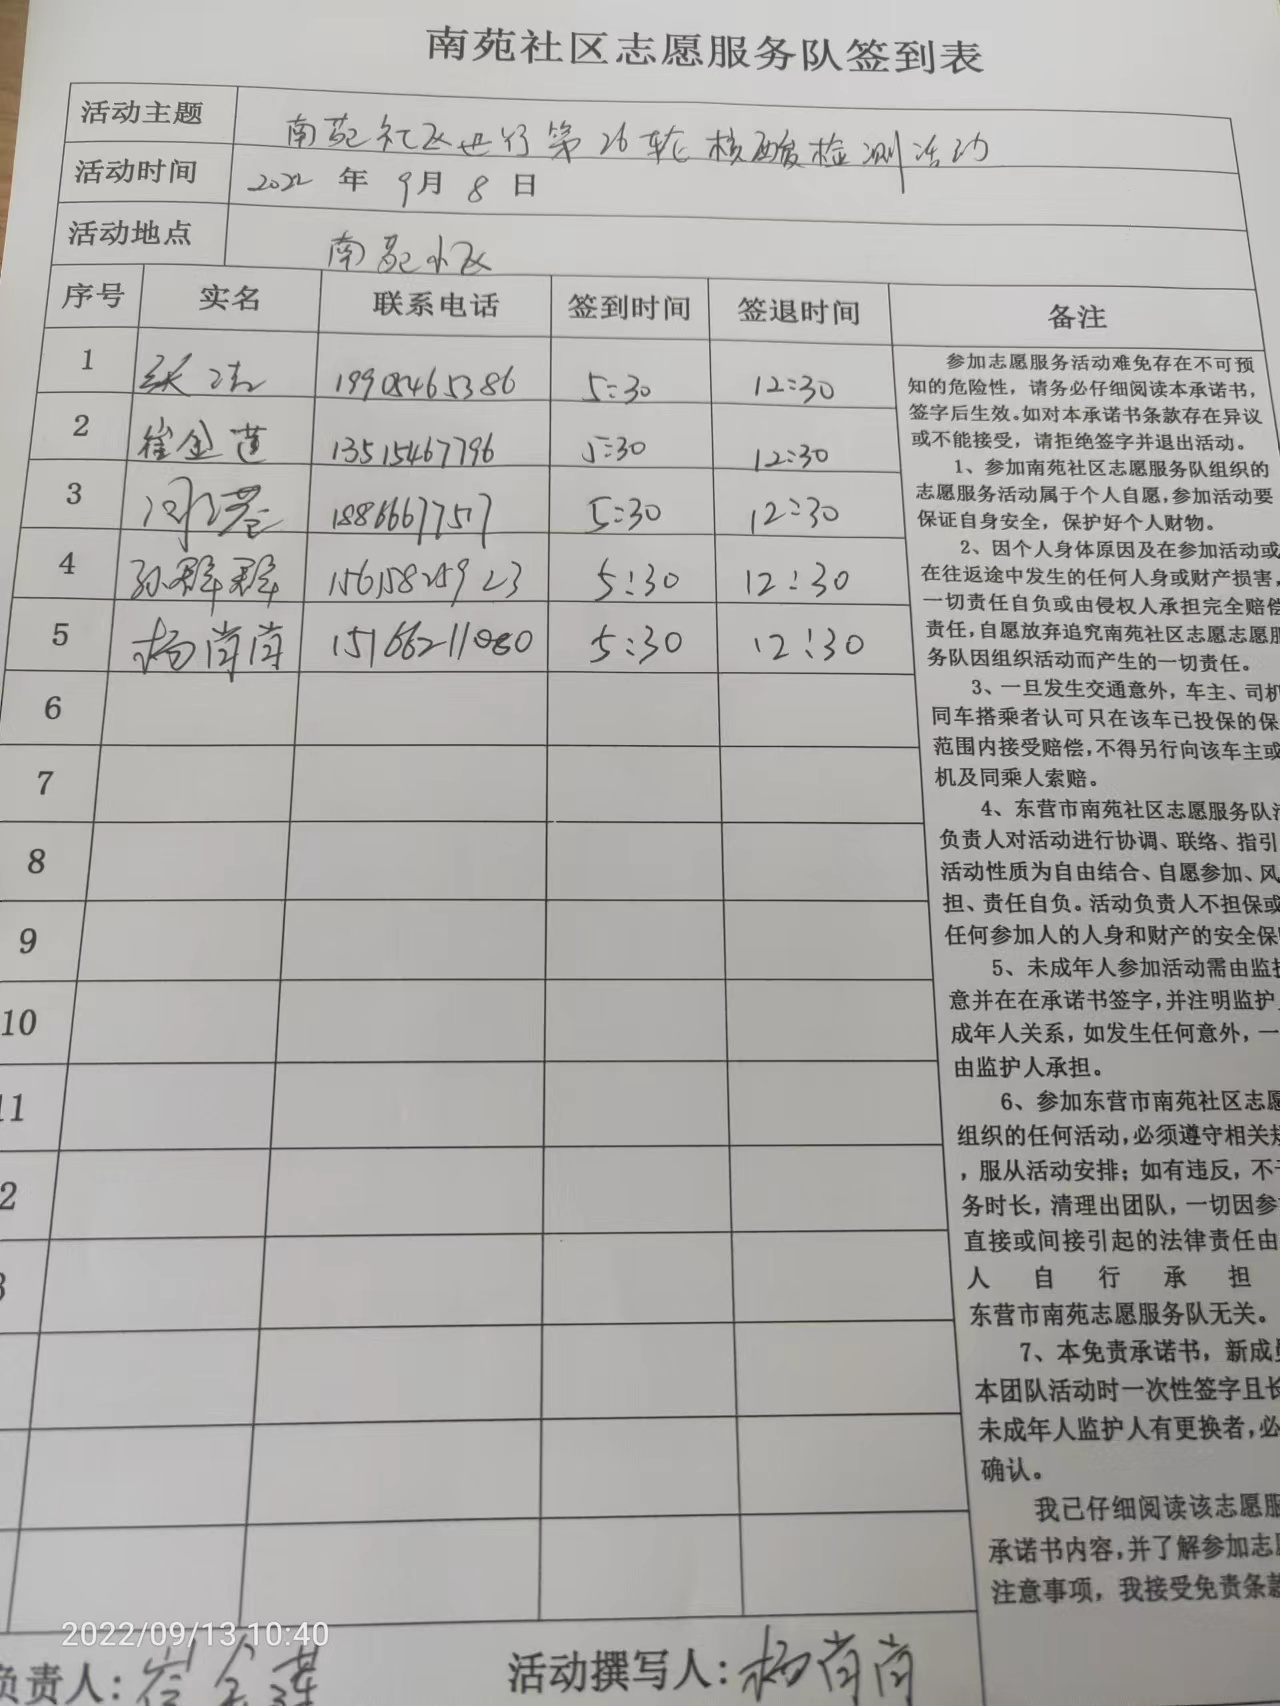 南苑社区志愿服务队签到表
活动主题 南苑社区进行第26轮核酸检测活动
活动时间 2022 年 9 月 8 日
活动地点 南苑小区
序号 实名 联系电话 签到时间 签退时间 备注
1 5:30 12:30
2 崔金莲 13515467796 5:30 12:30
3 18866677517 5:30 12:30
4 孙群群 15615825923 5:30 12:30
5 杨肖肖 5:30 12:30
6
7
8
9
10
11
2
3
参加志愿服务活动难免存在不可预
知的危险性，请务必仔细阅读本承诺书，
签字后生效。如对本承诺书条款存在异议
或不能接受，请拒绝签字并退出活动。
1、参加南苑社区志愿服务队组织的
志愿服务活动属于个人自愿，参加活动要
保证自身安全，保护好个人财物。
2、因个人身体原因及在参加活动或
在往返途中发生的任何人身或财产损害，
一切责任自负或由侵权人承担完全赔偿
责任，自愿放弃追究南苑社区志愿志愿服
务队因组织活动而产生的一切责任。
3、一旦发生交通意外，车主、司机
同车搭乘者认可只在该车已投保的保
范围内接受赔偿，不得另行向该车主或
机及同乘人索赔。
4、东营市南苑社区志愿服务队活
负责人对活动进行协调、联络、指引
活动性质为自由结合、自愿参加、风
担、责任自负。活动负责人不担保或
任何参加人的人身和财产的安全保
5、未成年人参加活动需由监护
意并在在承诺书签字，并注明监护
成年人关系，如发生任何意外，一
由监护人承担。
6、参加东营市南苑社区志愿
组织的任何活动，必须遵守相关规
，服从活动安排；如有违反，不予
务时长，清理出团队，一切因参
直接或间接引起的法律责任由
人 自 行 承 担
东营市南苑志愿服务队无关。
7、本免责承诺书，新成员
本团队活动时一次性签字且长
未成年人监护人有更换者，必
确认。
我已仔细阅读该志愿服
承诺书内容，并了解参加志愿
注意事项，我接受免责条款
2022/09/13 10:40
负责人：崔金莲 活动撰写人：杨肖肖